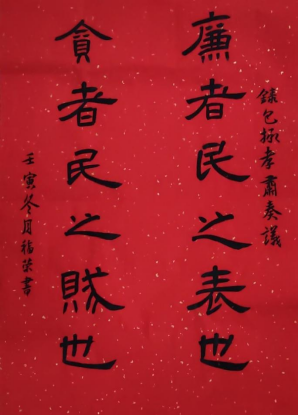 錄包拯孝肅奏議
廉者民之表也
貪者民之賊也
壬寅冬月福荣書